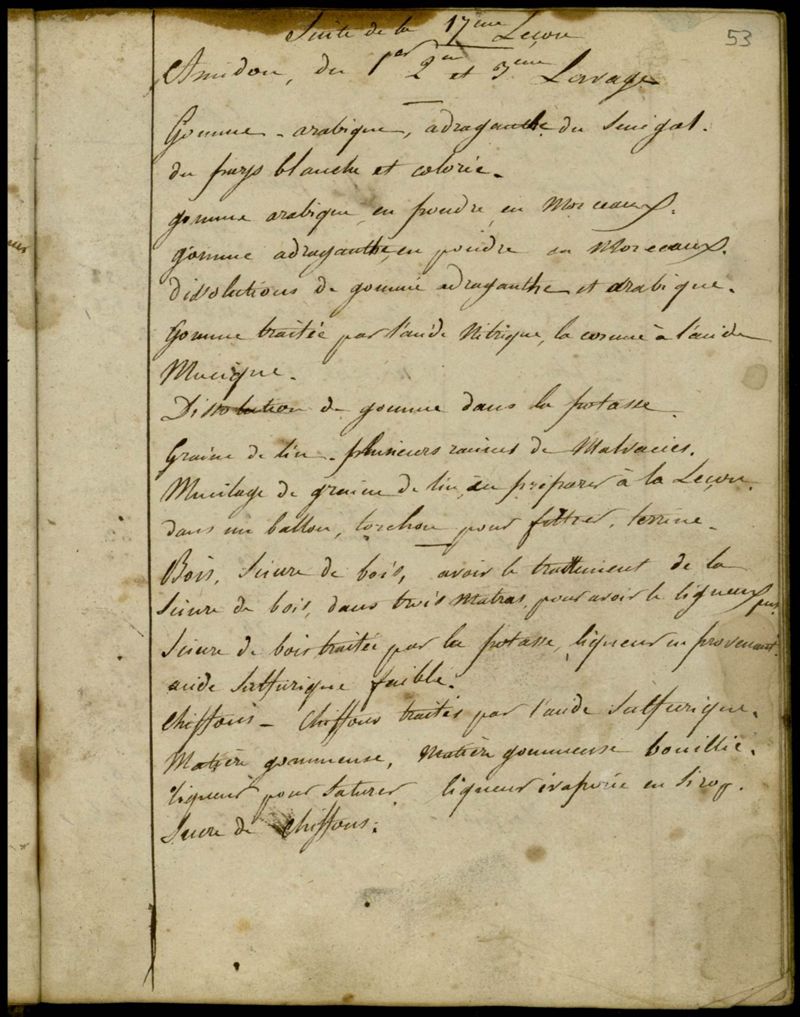 53
Suite de la 17eme Leçon
Amidon, du 1er 2e et 3eme Lavage
Gomme - arabique, adraganthe du Senégal.
du pays blanche et colorée.
gomme arabique en poudre en Morceaux.
gomme adraganthe, en poudre en Morceaux.
dissolutions de gomme adraganthe et arabique.
Gomme traitée par l'acide Nitrique, la cornue à l'acide
Mucique.
Dissolution de gomme dans la potasse.
Graine de lin - plusieurs racines de Malvacées.
Mucilage de graine de lin, à préparer à la Leçon.
dans un ballon, torchon pour filtrer, terrine.
Bois, Sciure de bois, avoir le traitement de la
Sciure de bois, dans trois Matras, pour avoir le ligneux pur.
Sciure de bois traitée par la potasse, liqueur en provenant.
acide Sulfurique faible.
Chiffons - Chiffons traités par l'acide Sulfurique.
Matière gommeuse, Matière gommeuse bouillie.
liqueur pour Saturer, liqueur évaporée en Sirop.
Sucre de Chiffons.